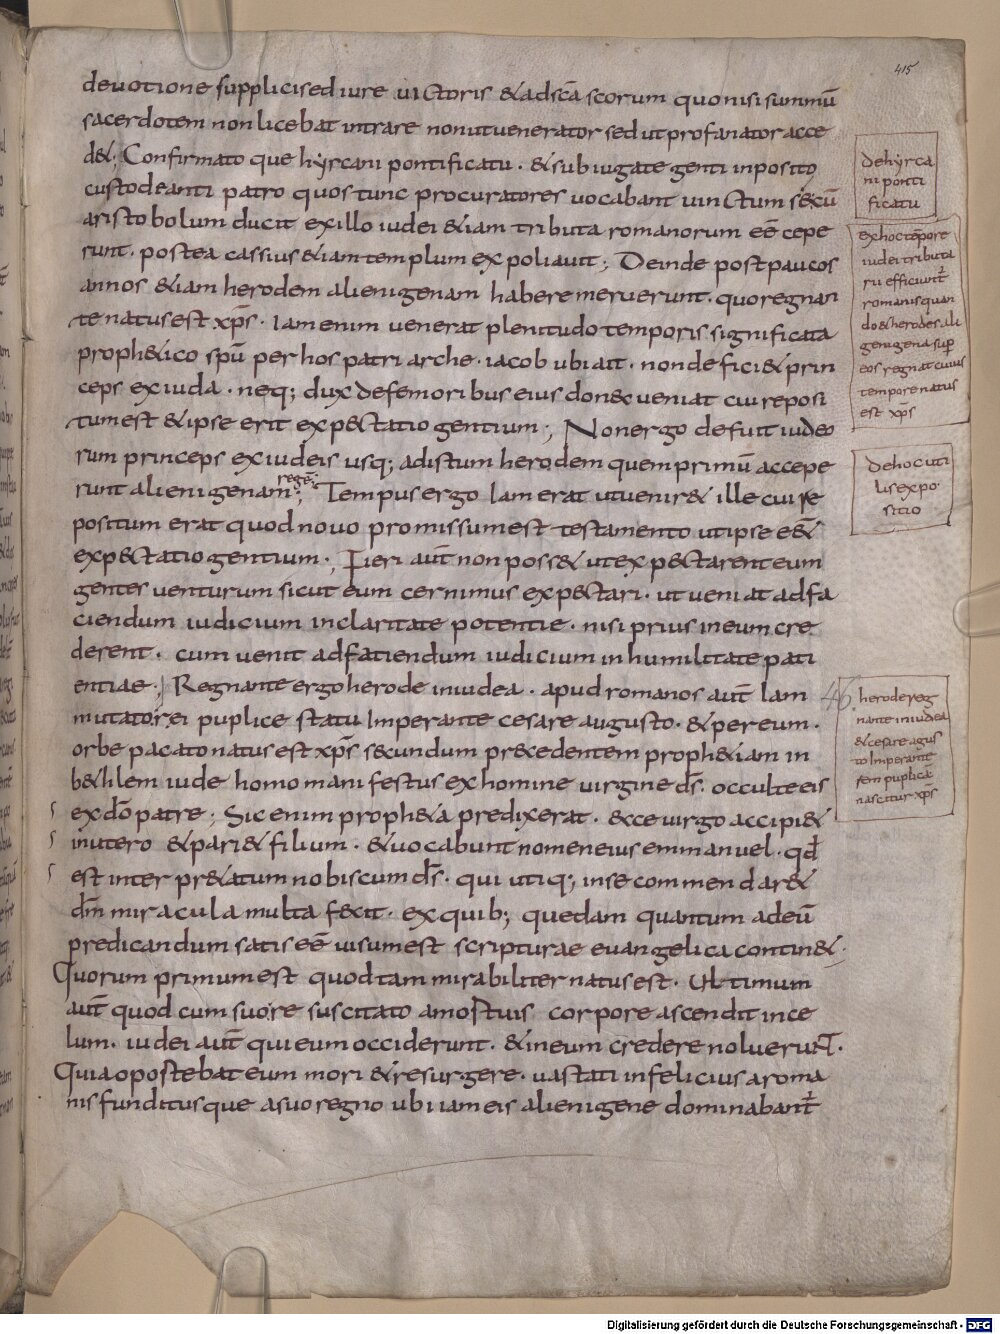 415
deuotione supplicis sed iure uictoris & ad sc̄a sc̄orum quo nisi summū
sacerdotem non licebat intrare non ut uenerator sed ut profanator acce
d&; Confirmato que hẏrcani pontificatu · & subiugate genti inposito
custode anti patro quos tunc procuratores uocabant uinctum secū
aristobolum ducit ex illo iudei & iam tributa romanorum eē cepe
runt · postea cassius & iam templum expoliauit; Deinde post paucos
annos & iam herodem alienigenam habere meruerunt · quo regnan
te natus est xp̄s · Iam enim uenerat plenitudo temporis significata
proph&ico spū per hos patriarche · iacob ubi ait · non defici& prin
ceps ex iuda · neq; dux de femoribus eius donec ueniat cui reposi
tum est & ipse erit expectatio gentium; Non ergo defuit iudeo
rum princeps ex iudeis usq; ad istum herodem quem primū accepe
runt alienigenam regē; Tempus ergo Iam erat ut uenir& ille cui re
positum erat quod nouo promissum est testamento ut ipse ee&
expectatio gentium; Fieri aut̄ non poss& ut expectarent eum
gentes uenturum sicut eum cernimus expectari · ut ueniat ad fa
ciendum iudicium in claritate potentie · nisi prius in eum cre
derent · cum uenit ad fatiendum iudicium in humilitate pati
entiae; Regnante ergo herode in iudea · apud romanos aut̄ Iam
mutato rei puplice statu Imperante cesare augusto · & per eum ·
orbe pacato natus est xp̄s secundum precedentem proph&iam in
b&hlem iude homo manifestus ex homine uirgine ds̄ · occulte eis
ex dō patre; Sic enim proph&a predixerat · ecce uirgo accipi&
in utero & pari& filium · & uocabunt nomen eius emmanuel · qd̄
est interpr&atum nobiscum ds̄ · qui utiq; in se commendar&
dm̄ miracula multa fecit · ex quib; quedam quantum ad eū
predicandum satis eē uisum est scripturae euangelica contin&;
Quorum primum est quod tam mirabiliter natus est · Ultimum
aut̄ quod cum suo re suscitato a mortuis corpore ascendit in ce
lum · iudei aut̄ qui eum occiderunt · & in eum credere noluerunt ·
Quia opostebat eum mori & resurgere · uastati infelicius a roma
nis funditus que a suo regno ubi iam eis alienigene dominabant̄
de hẏrca
ni ponti
ficatu
ex hoc tēpore
iudei tributa
rii efficiunt̄
romanis quan
do & herodes ali
genigena sup̄
eos regnat cuius
tempore natus
est xp̄s
de hoc uti
lis expo
sitio
46.
herode reg
nante in iudea
& cesare agus
to Imperante
rem puplica
nascitur xp̄s
Digitalisierung gefördert durch die Deutsche Forschungsgemeinschaft - DFG